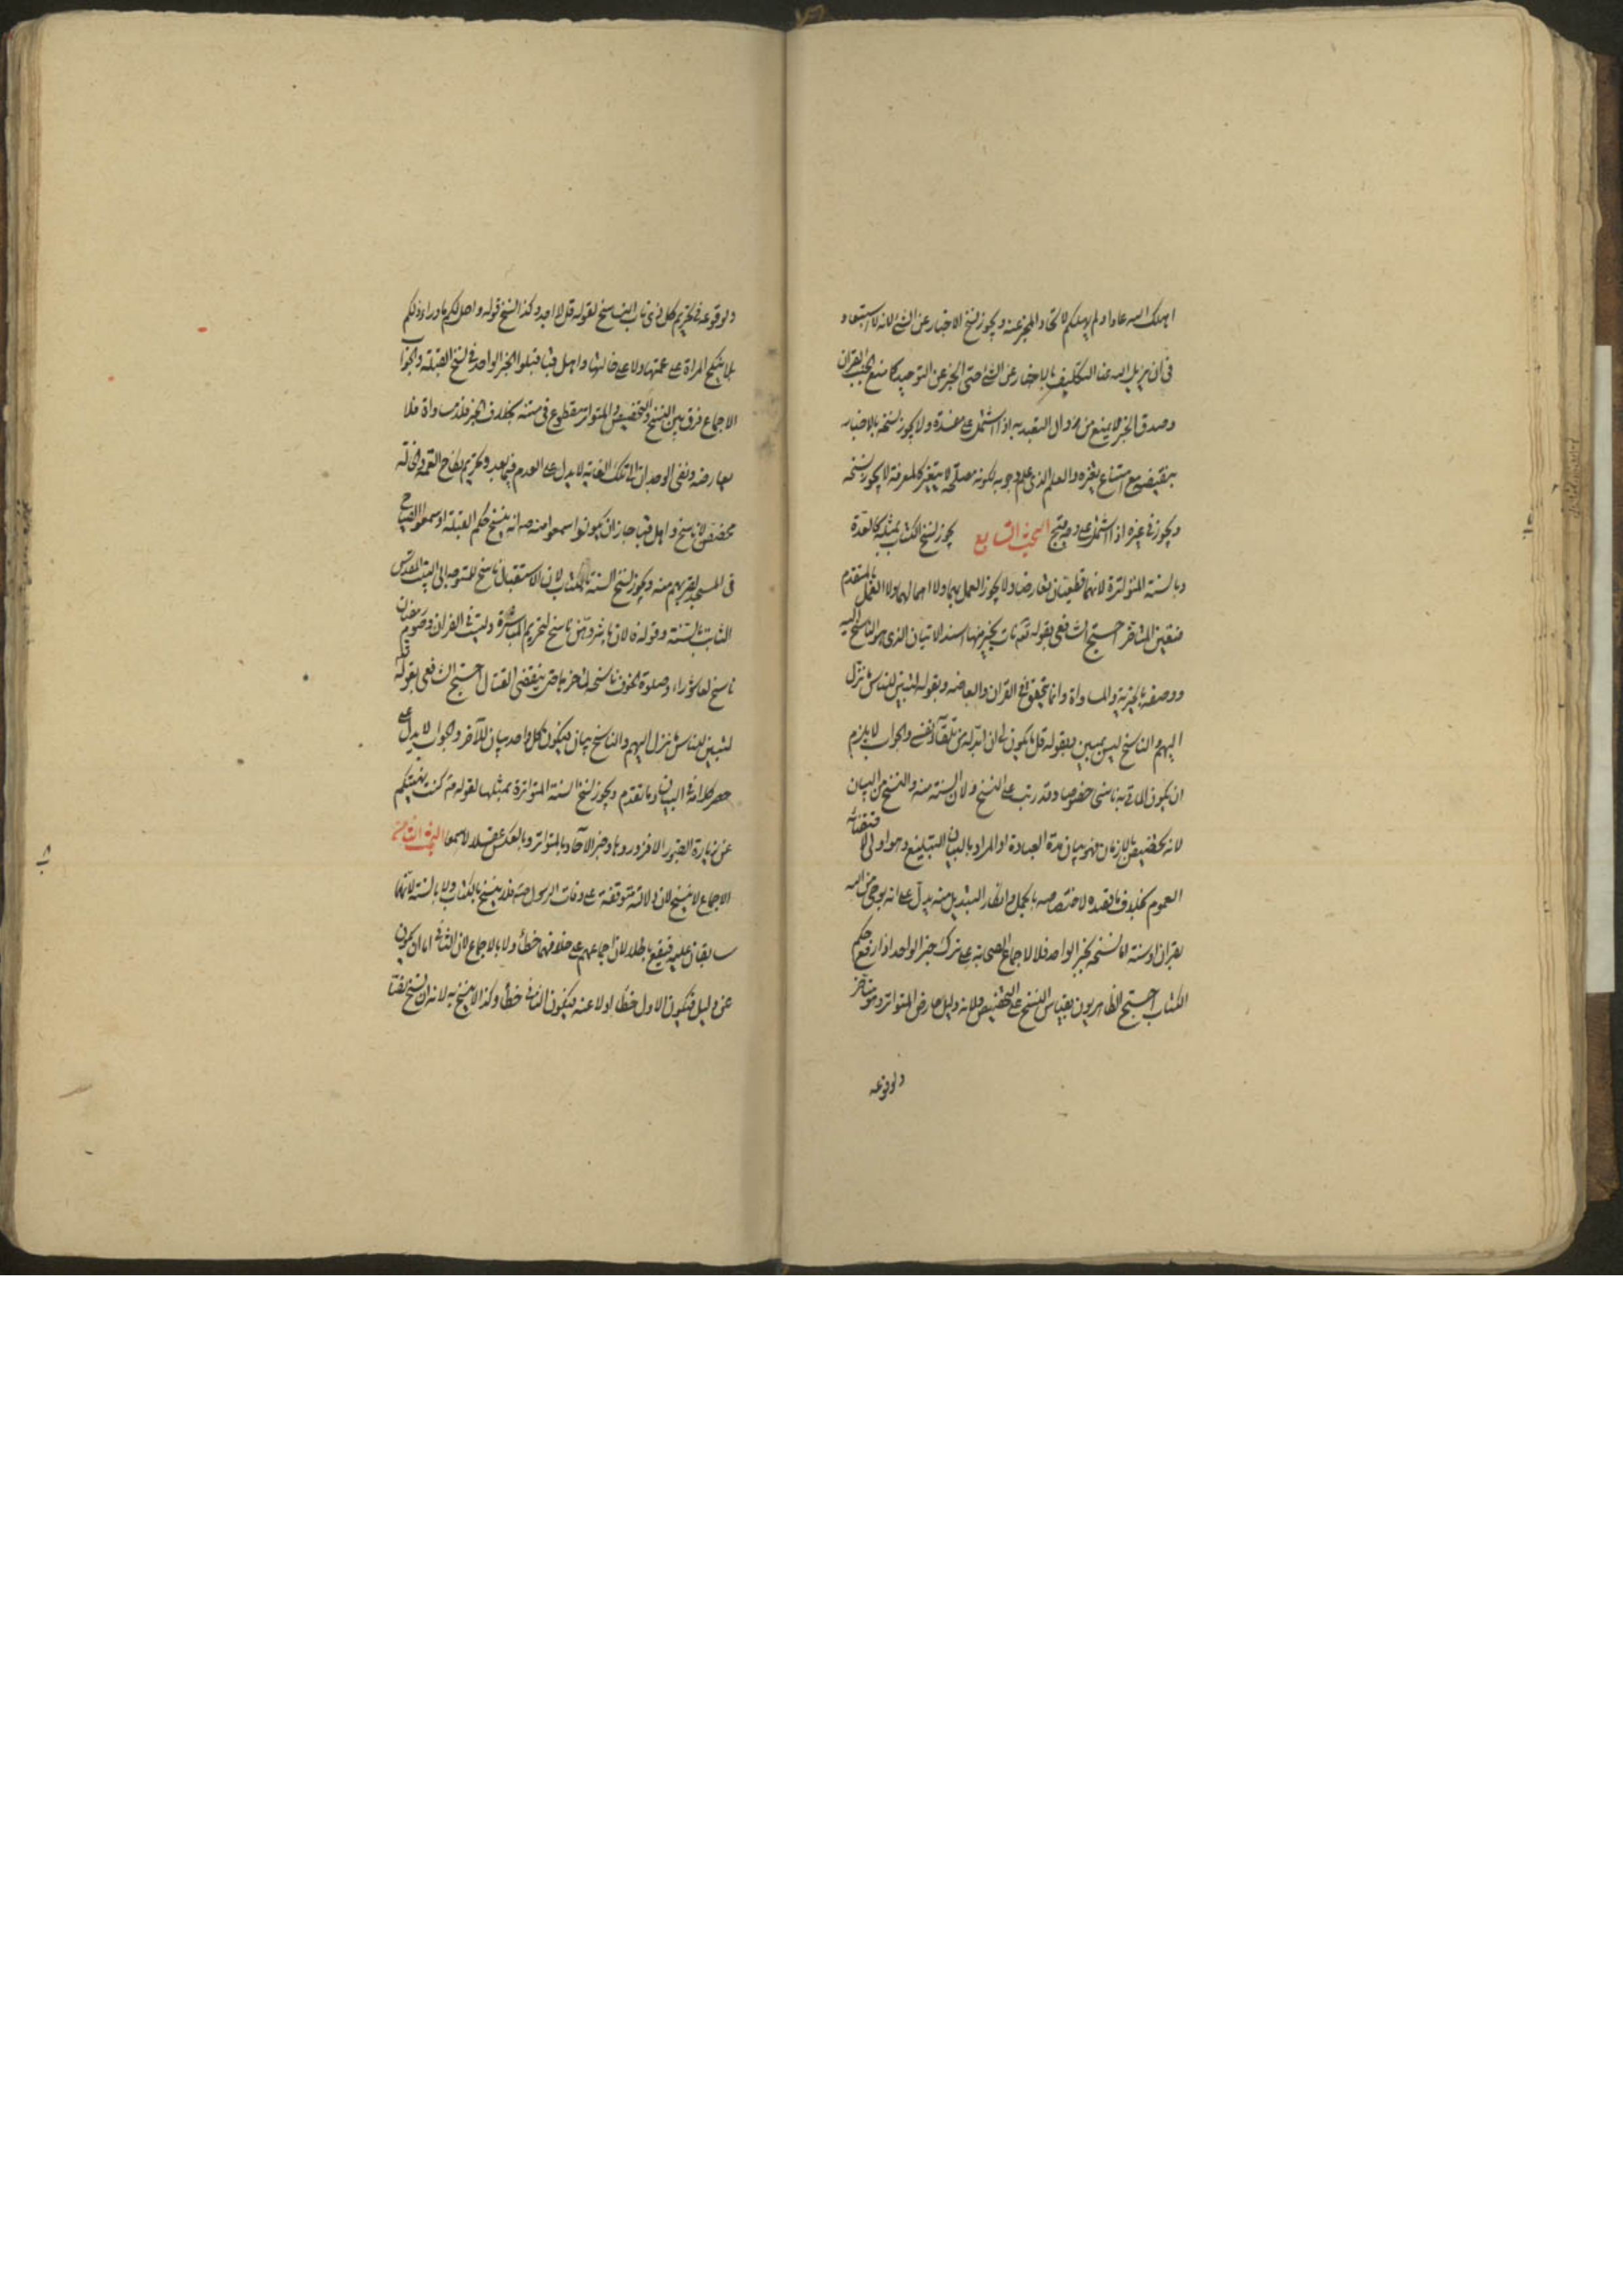 اهلك الله عادا ولم يهلكهم لاتحاد المخبر عنه ويجوز نسخ الاخبار عن الشئ لانه لا استبعاد
في ان يزيل الله عنا التكليف بالاخبار عن الشئ حتى الخبر عن التوحيد كما منع الجنب القران
وصدق الخبر لا يمنع من زوال التعبد به اذا اشتمل على مفسدة ولا يجوز نسخه بالاخبار
بنقيضه مع امتناع تغيره والعلم الذى علم وجوبه لكونه مصلحة لا يتغير كالمعرفة لا يجوز نسخه
ويجوز في غيره اذا اشتمل على وجه قبح البحث السابع يجوز نسخ الكتاب بمثله كالعدة
وبالسنة المتواترة لانهما قطعيان تعارضا ولا يجوز العمل بهما ولا اهمالهما ولا العمل بالمتقدم
فتعين المتاخر احتج الشافعى بقوله تعه نات بخير منها اسند الاتيان الذى هو الناسخ اليه
ووصفه بالخيرية والمساواة وانما يتحقق في القران والعاضه وبقوله لتبين للناس ما نزل
اليهم والناسخ ليس بمبين وبقوله قل ما يكون لى ان ابدله من تلقاء نفسى والجواب لا يلزم
ان يكون الماتى به ناسخا خصوصا وقد رتب على النسخ ولان السنة منه والنسخ من البيان
لانه تخصيص بالازمان فهو بيان مدة العبادة او المراد بالبيان التبليغ وهو اولى لاقتضائه
العموم بخلاف ما قصده لاختصاصه بالمجمل وانكار التبديل منه يدل على انه يوحى من الله
بقران او سنة اما نسخه بخبر الواحد فلا لاجماع الصحابة على ترك خبر الواحد اذا رفع حكم
الكتاب احتج الظاهريون بقياس النسخ على التخصيص ولانه دليل عارض المتواتر وهو متاخر
ولوقوعه
ولوقوعه في تحريم كل ذى ناب الناسخ لقوله قل لا اجد وكذا نسخ قوله واحل لكم ما وراء ذلكم
بلا ينكح المراة على عمتها ولا على خالتها واهل قبا قبلوا الخبر الواحد في نسخ القبلة والجواب
الاجماع فرق بين النسخ والتخصيص والمتواتر مقطوع في متنه بخلاف الخبر فلا مساواة فلا
يعارضه ونفى الوجدان الى تلك الغاية لا يدل على العدم فيما بعد وتحريم نكاح العمة والخالة
مخصص لا ناسخ واهل قبا جاز ان يكونوا سمعوا منه صه انه ينسخ حكم القبلة او سمعوا الصياح
في المسجد لقربهم منه ويجوز نسخ السنة بالكتاب لان الاستقبال ناسخ للتوجه الى البيت المقدس
الثابت بالسنة وقوله فالان باشروهن ناسخ لتحريم المباشرة وليست في القران وصوم رمضان
ناسخ لعاشوراء وصلوة الخوف ناسخه لتاخرها حتى ينقضى القتال احتج الشافعى بقوله تعه
لتبين للناس ما نزل اليهم والناسخ بيان فيكون كل واحد بيان للآخر والجواب لا يدل على
حصر كلامه في البيان وما تقدم ويجوز نسخ السنة المتواترة بمثلها لقوله مه كنت نهيتكم
عن زيارة القبور الا فزوروها وخبر الآحاد بالمتواتر وبالعكس عقلا لا سمعا البحث الثامن
الاجماع لا ينسخ لان دلالته متوقفة على وفات الرسول صه فلا ينسخ بالكتاب ولا بالسنة لانهما
سابقان عليه فيقع باطلا لان اجماعهم على خلافهما خطأ ولا بالاجماع لان الثانى اما ان يكون
عن دليل فيكون الاول خطأ او لا عنه فيكون الثانى خطأ وكذا لا ينسخ به لانه ان نسخ نصا